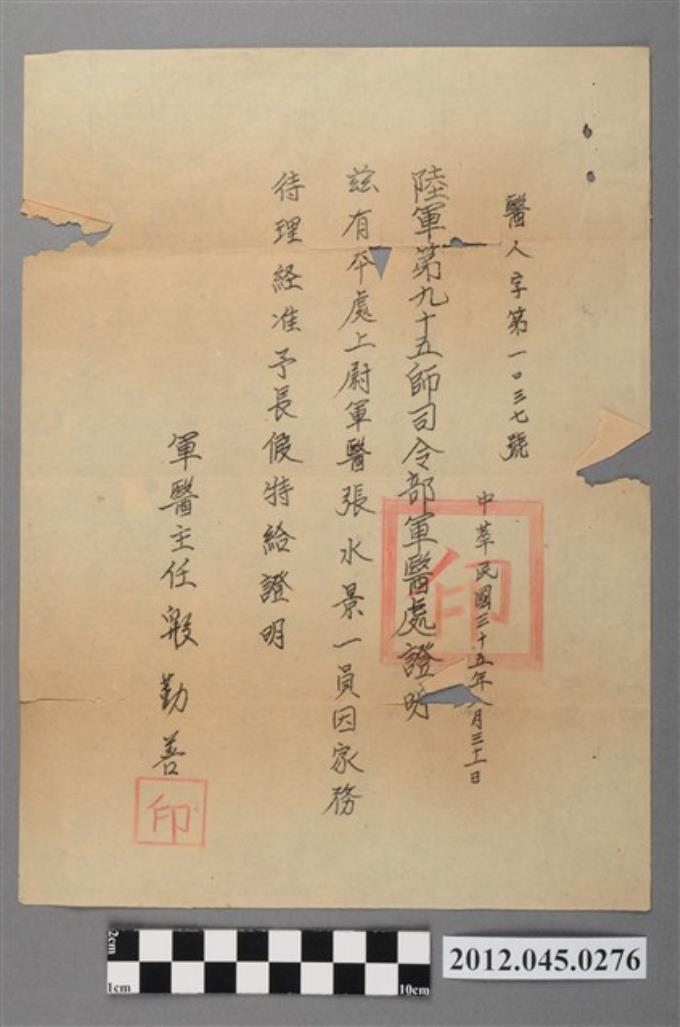 醫人字第一〇三七號
中華民國三十五年八月三十一日
陸軍第九十五師司令部軍醫處證明
茲有本處上尉軍醫張水景一員因家務
待理経准予長假特給證明
軍醫主任 殷勤善
印
印
2cm
1cm
10cm
2012.045.0276